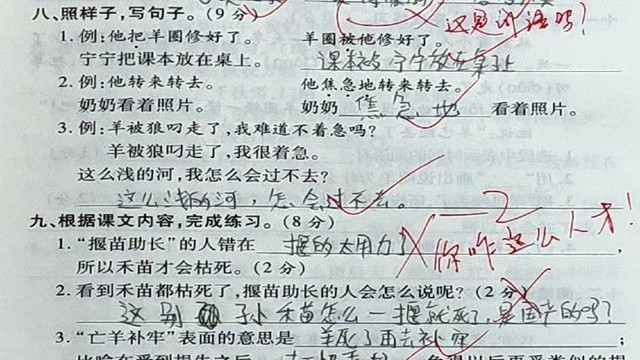 八、照样子，写句子。(9分) 这是汉语吗?
1. 例:他把羊圈修好了。 羊圈被他修好了。
宁宁把课本放在桌上。 课本被宁宁放在桌上
2. 例:他转来转去。 他焦急地转来转去。
奶奶看着照片。 奶奶 焦急地 看着照片。
3. 例:羊被狼叼走了,我难道不着急吗?
羊被狼叼走了,我很着急。
这么浅的河,我怎么会过不去?
这么浅的河，怎会过不去。
九、根据课文内容,完成练习。(8分) —2
1.“揠苗助长”的人错在 揠的太用力了 你咋这么人才!
所以禾苗才会枯死。(2分)
2. 看到禾苗都枯死了,揠苗助长的人会怎么说呢?(2分)
这 子小禾苗怎么一揠就死了，是国产的吗?
3.“亡羊补牢”表面的意思是 羊死了再去补牢